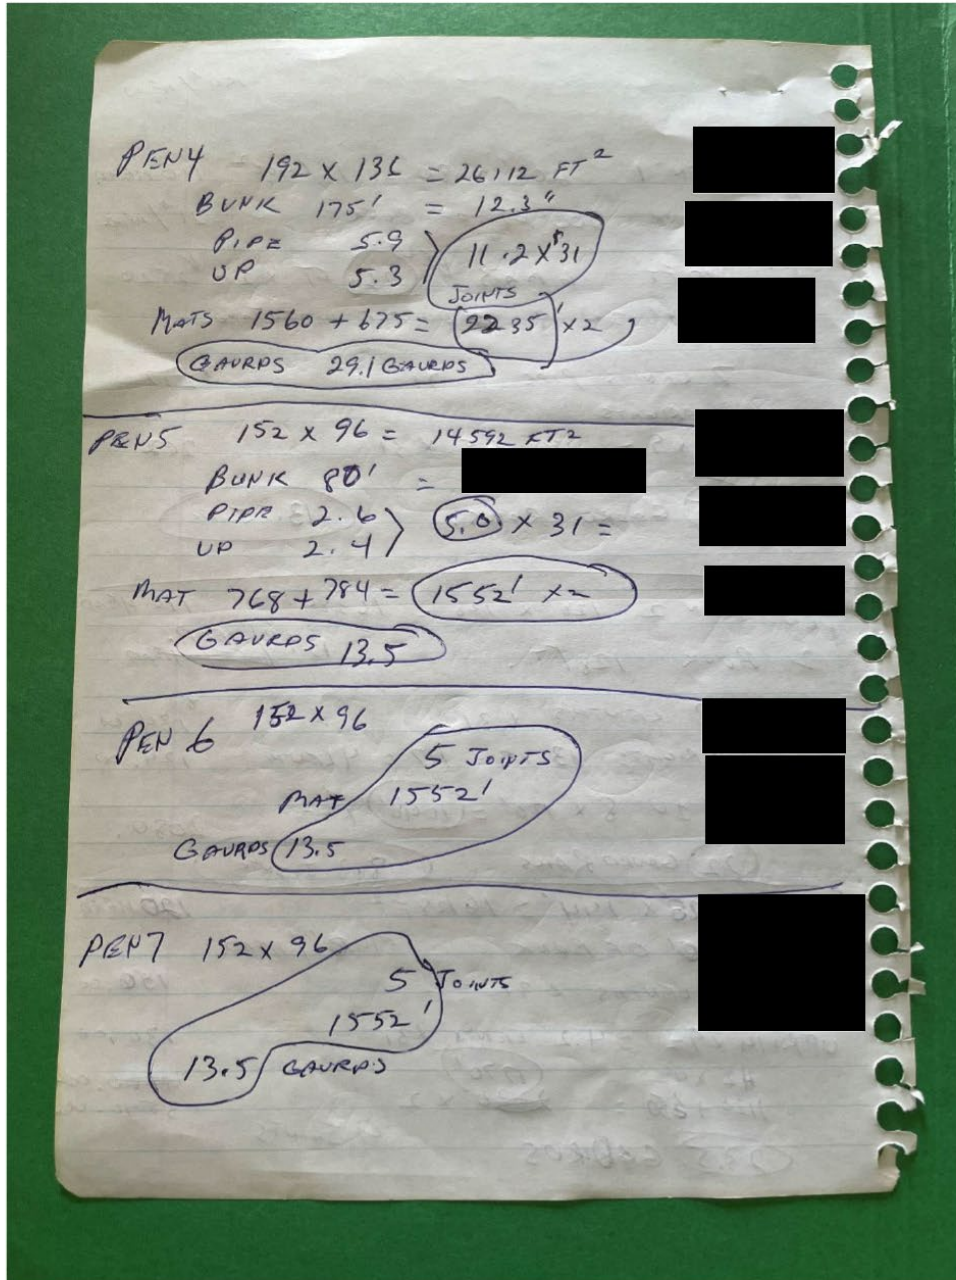 PEN4 192 x 136 = 26112 FT²
BUNK 175' = 12.3"
PIPE 5.9
UP 5.3
11.2 x 31
JOINTS
MATS 1560 + 675 = 2235' x2
GAURDS 29.1 GAURDS
PEN5 152 x 96 = 14592 FT2
BUNK 80' =
PIPE 2.6
UP 2.4
5.0 x 31 =
MAT 768 + 784 = 1552' x2
GAURDS 13.5
PEN 6 152 x 96
5 JOINTS
MAT 1552'
GAURDS 13.5
PEN7 152 x 96
5 JOINTS
1552'
13.5 GAURDS